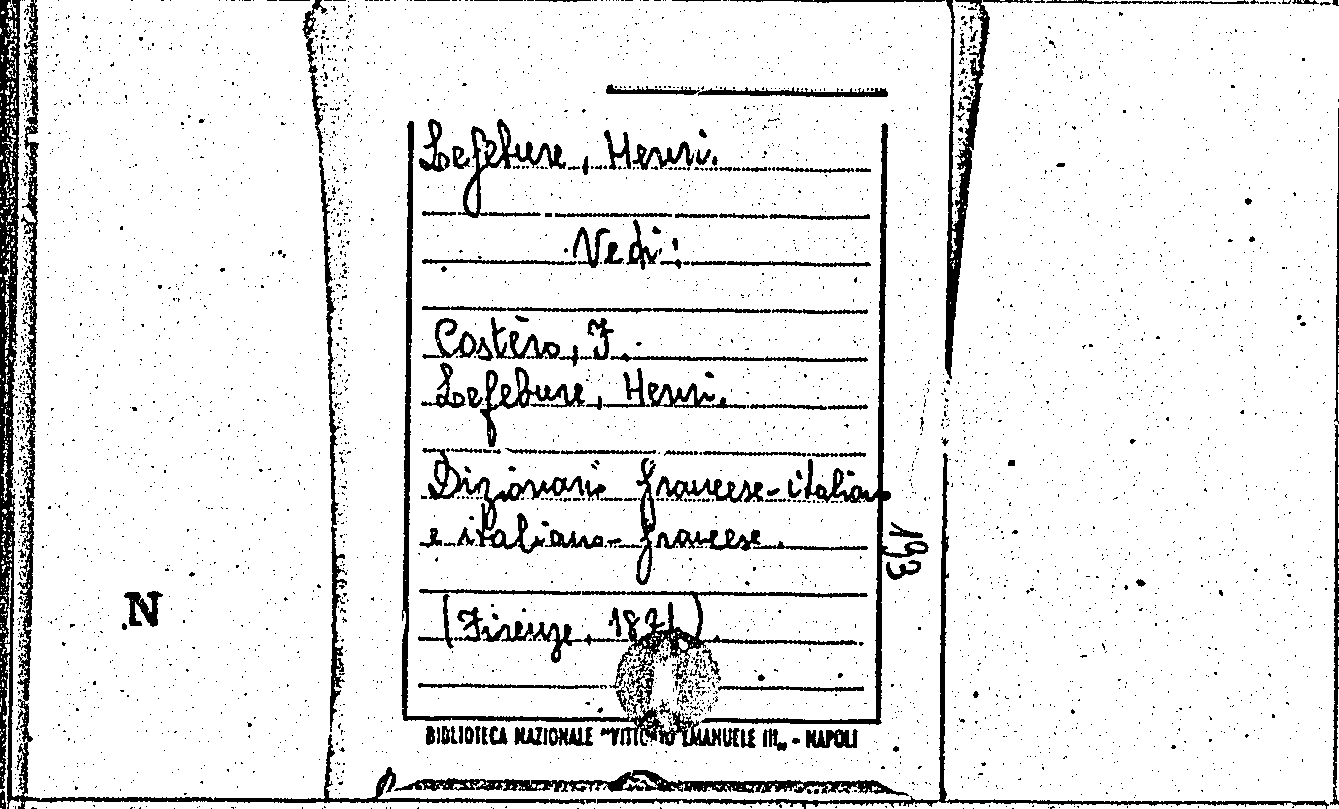 Lefebure, Henri.
Vedi:
Costèro, F.
Lefebure, Henri.
Dizionario francese-italiano
e italiano-francese.
(Firenze, 1871).
193
N
BIBLIOTECA NAZIONALE "VITTORIO EMANUELE III„ - NAPOLI